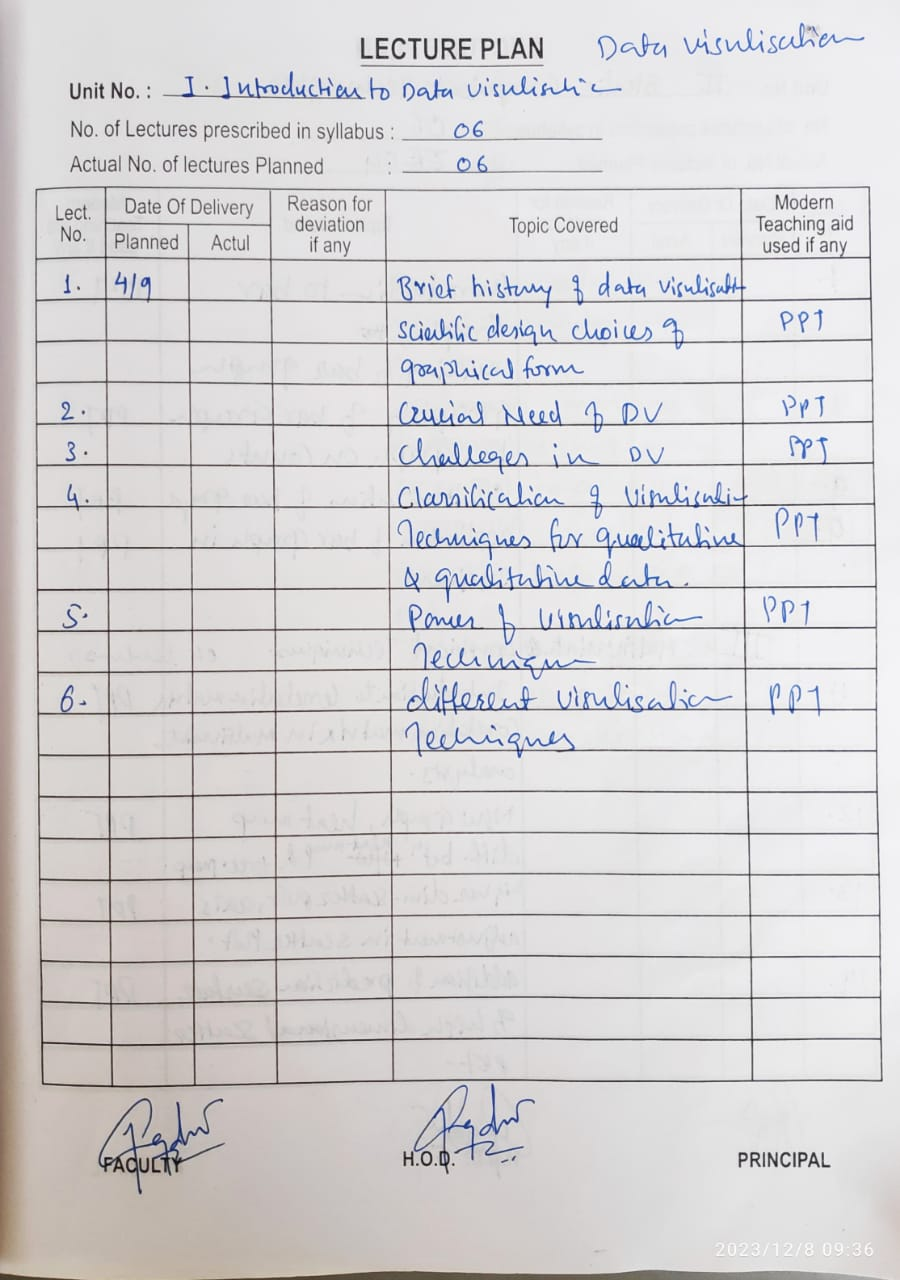 LECTURE PLAN Data visulisation
Unit No. : I. Introduction to Data Visulisatio
No. of Lectures prescribed in syllabus : 06
Actual No. of lectures Planned : 06
Lect. No. Date Of Delivery Reason for deviation if any Topic Covered Modern Teaching aid used if any
Planned Actul
1. 4/9 Brief history of data visulisatn
Scientific design choices of PPT
graphical form
2. Crucial Need of DV PPT
3. Challeges in DV PPT
4. Classification of Visulisatin
Techniques for qualitative PPT
& qualitative data.
5. Power of Visulisation PPT
Technique
6. different visulisation PPT
Techniques
FACULTY H.O.D. PRINCIPAL
2023/12/8 09:36